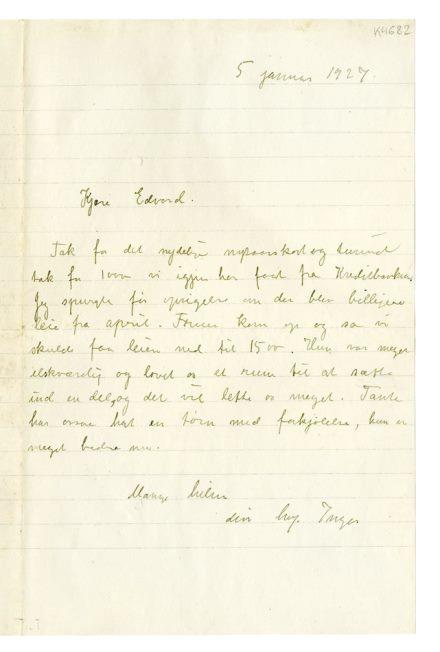 K4682
5 januar 1927.
Kjære Edvard.
Tak for det nydelige nytaarskort og tusind
tak for 1000 vi igjen har faat fra Kreditbanken.
Jeg spurgte før om der blev billigere
leie fra april. Fruen kom op og sa vi
skulde faa leien ned til 1500. Hun var meget
elskværdig og lovet os et rum til at sætte
ind en del, og det vil lette os meget. Tante
har ogsaa hat en tørn med forkjølelse, hun er
meget bedre nu.
Mange hilsen
din hng. Inger